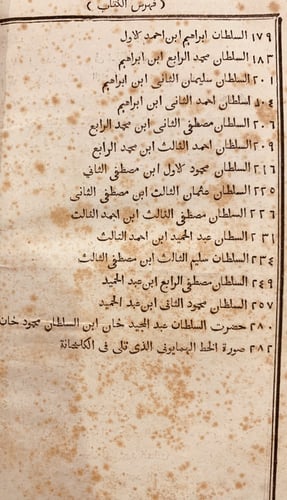 ( فهرس الكتاب )
١٧٩ السلطان ابراهيم ابن احمد كاول
١٨٣ السلطان محمد الرابع ابن ابراهيم
٢٠١ السلطان سليمان الثانى ابن ابراهيم
٢٠٤ السلطان احمد الثانى ابن ابراهيم
٢٠٦ السلطان مصطفى الثانى ابن محمد الرابع
٢٠٩ السلطان احمد الثالث ابن محمد الرابع
٢١٦ السلطان محمود كاول ابن مصطفى الثانى
٢٢٥ السلطان عثمان الثالث ابن مصطفى الثانى
٢٢٦ السلطان مصطفى الثالث ابن احمد الثالث
٢٣١ السطان عبد الحميد ابن احمد الثالث
٢٣٤ السلطان سليم الثالث ابن مصطفى الثالث
٢٤٩ السلطان مصطفى الرابع ابن عبد الحميد
٢٥٧ السلطان محمود الثانى ابن عبد الحميد
٢٨٠ حضرت السلطان عبد المجيد خان ابن السلطان محمود خان
٢٨٢ صورة الخط الهمايونى الذى قلى فى الكلخانة